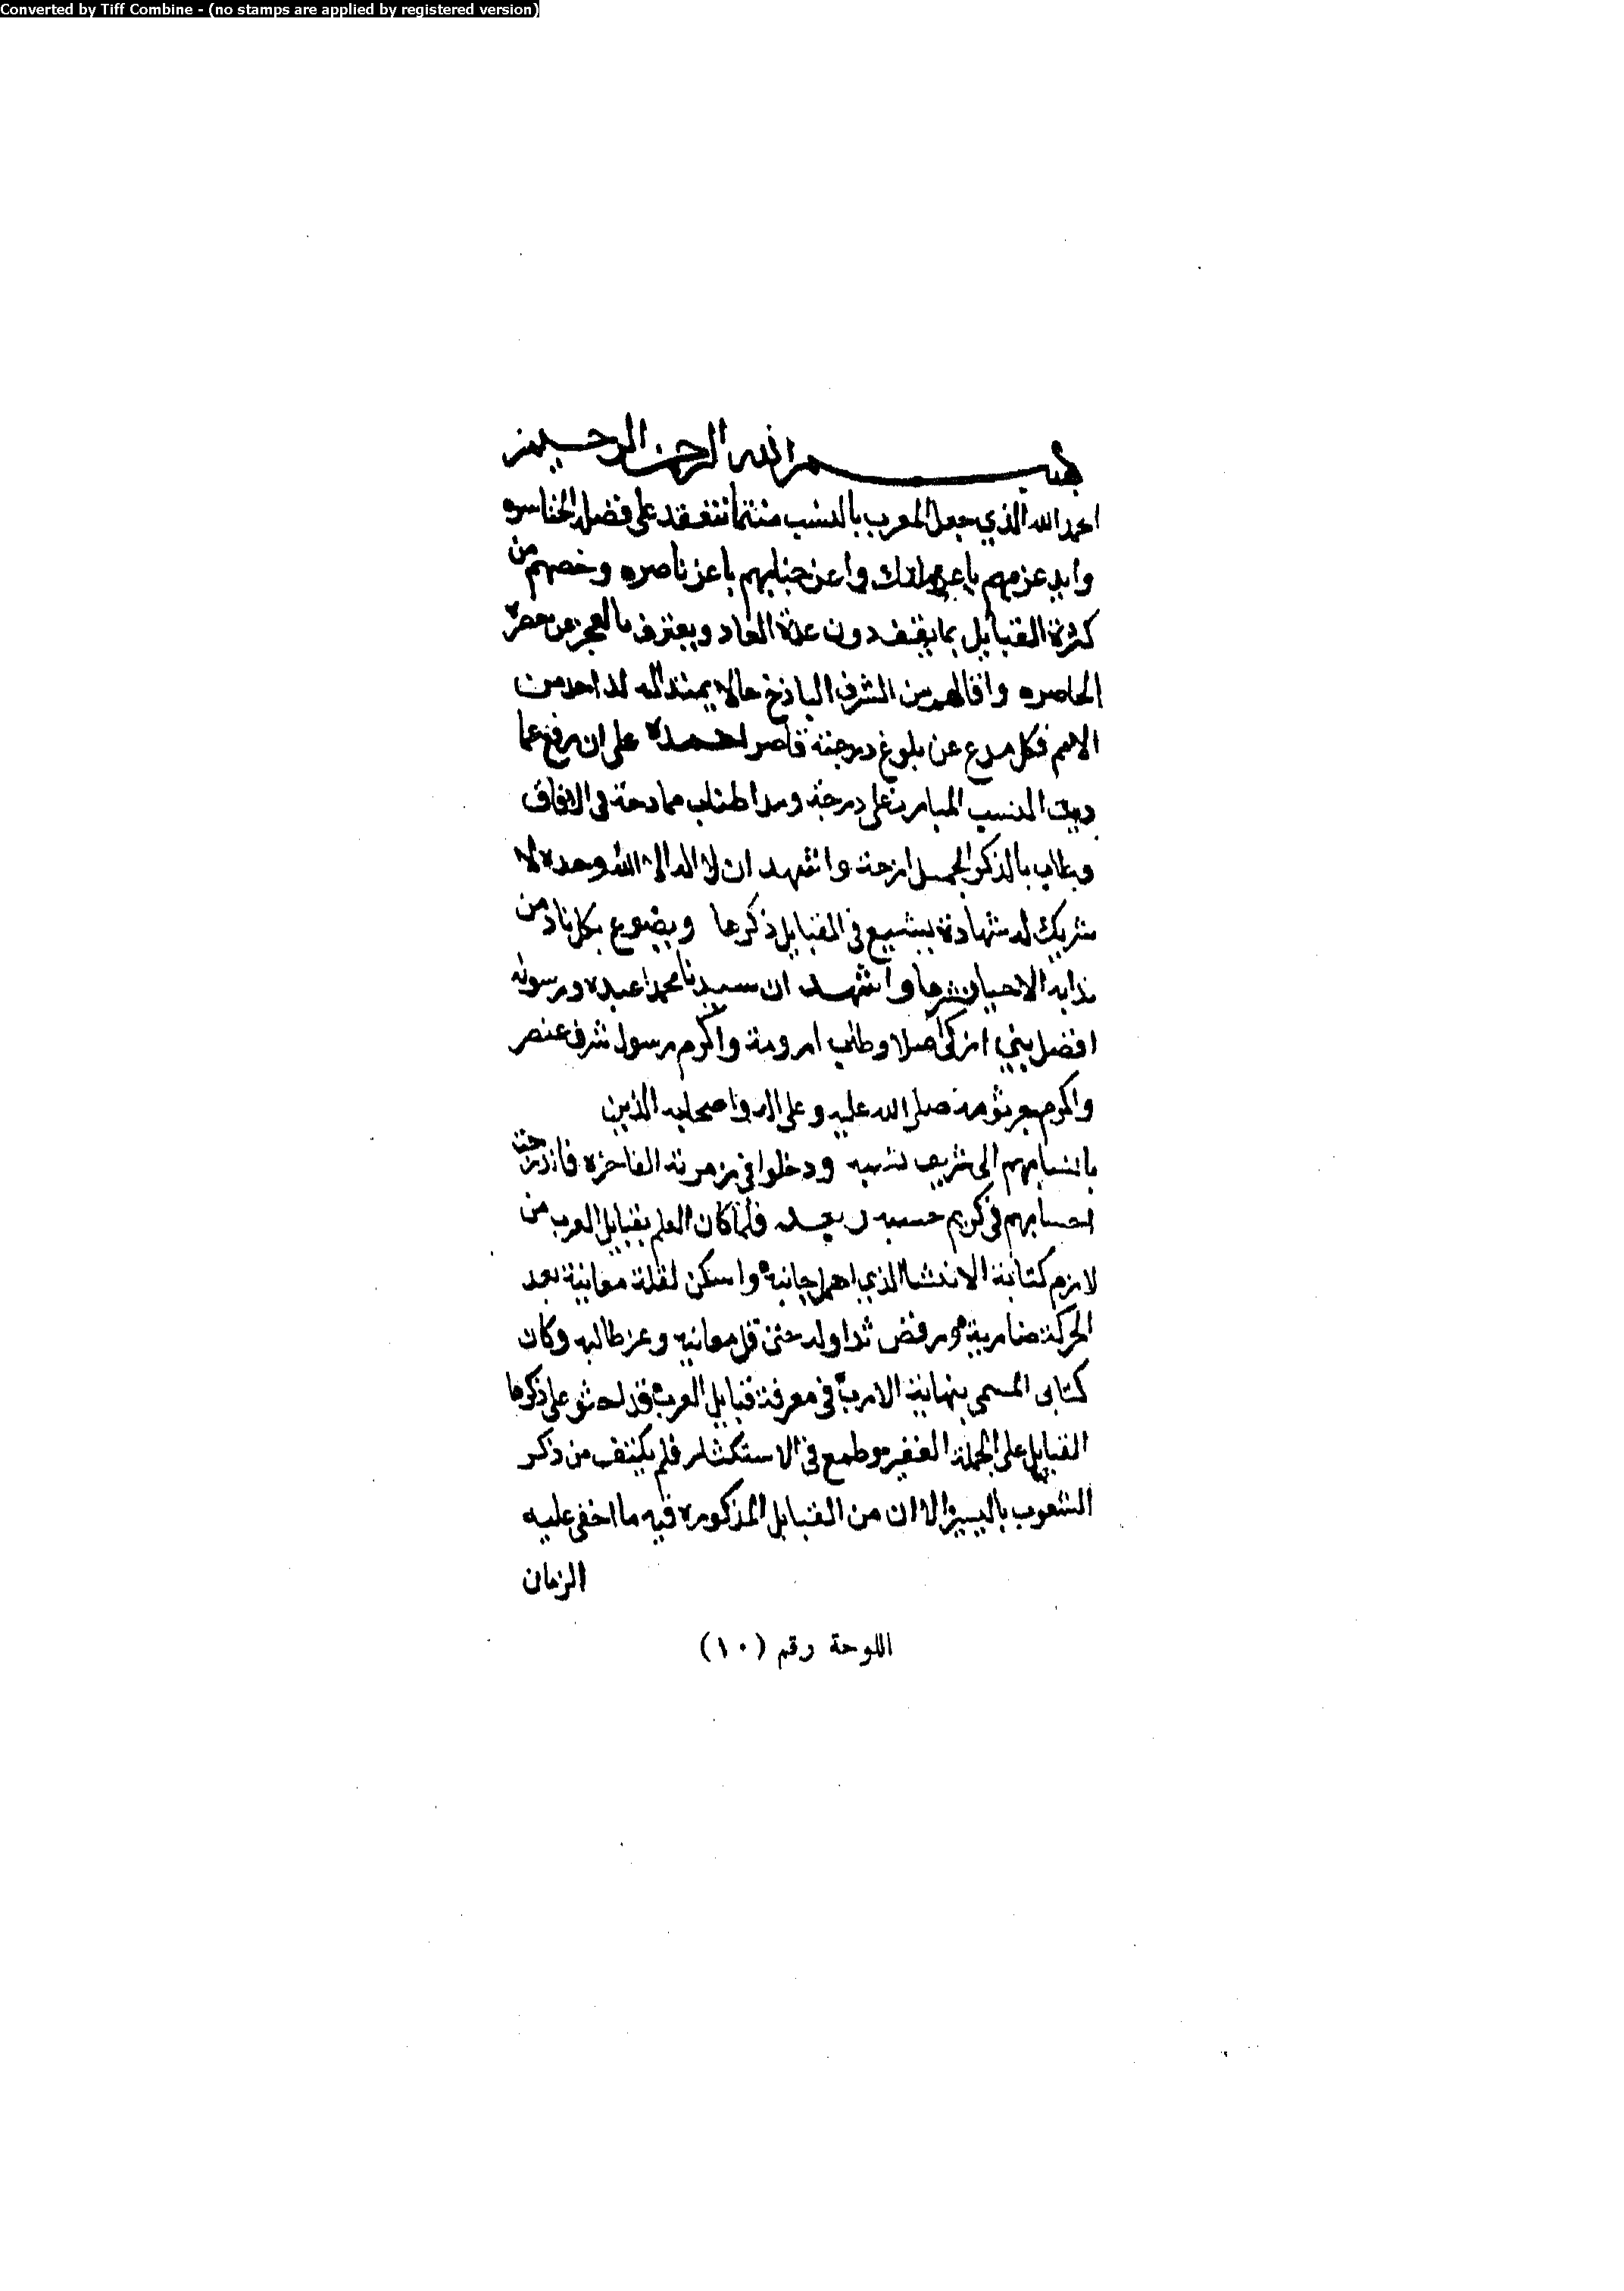 Converted by Tiff Combine - (no stamps are applied by registered version)
بسم الله الرحمن الرحيم
احمد الله الذي جعل للعرب بالنسب منتما تنعقد على فضله الخناصره
وايد عزمهم باعز مالك واعز جنابهم باعز ناصره وخصهم من
كثرة القبايل بما يقف دون عده العاد ويعترف بالعجز عن حصره
الحاصره وانالهم من الشرف الباذخ ما لا يمتد اليه لاحد من
الامم فكل مدع عن بلوغ درجته قاصر احمده على ان رفع عما
النسب المبارك على درجة ومد اطناب ممادحه في الافاق
بالذكر الجميل ارجه واشهد ان لا اله الا الله وحده لا
شريك له شهادة يشيع في القبايل ذكرها ويضوع بكل ناد من
الاحيان نشرها واشهد ان سيدنا محمدا عبده ورسوله
افضل بني ازكى اصلا وطاب ارومة واكرم رسول شرف عنصر
واكرم جرثومة صلى الله عليه وعلى اله واصحابه الذين
بانسابهم الى شريف نسبه ودخلوا في زمرته الفاخره
احسابهم في كريم حسبه وبعد فلما كان العلم بقبايل العرب من
لازم كتابة الانشا الذي اهمل جانبه واسكن لقلة معانيه بعد
الحركة ضاربه ورفض تداوله حتى قل معانيه وعز طالبه وكان
كتابى المسمى بنهاية الارب في معرفة قبايل العرب قد على ذكرها
القبايل على الجملة الغفير وطمع في الاستكثار فلم يكتف من ذكر
الشعوب باليسير الا ان من القبايل المذكوره فيه ما اخفى عليه
الزمان
اللوحة رقم (١٠)